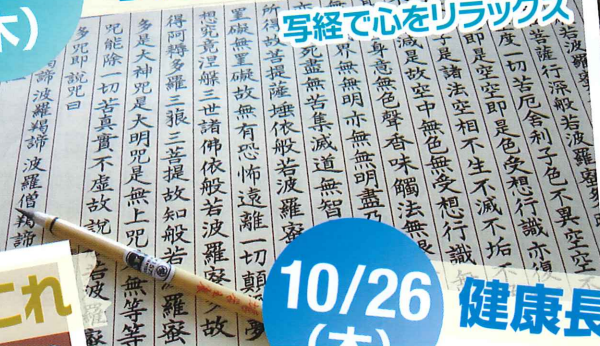 木）
写経で心をリラックス
若波羅蜜多
菩薩行深般若波羅蜜
度一切苦厄舍利子色不異空空
即是空空即是色受想行識亦復
子是諸法空相不生不滅不垢不
滅是故空中無色無受想行識
身意無色聲香味觸法無眼
界無無明亦無無明盡乃
死盡無苦集滅道無智
所得故菩提薩埵依般若波羅蜜
罣礙無罣礙故無有恐怖遠離一切顛
想究竟涅槃三世諸佛依般若波羅蜜多故
得阿耨多羅三藐三菩提故知般若波羅蜜
多是大神咒是大明咒是無上咒是無等等
咒能除一切苦真實不虛故說般若波羅蜜
多咒即說咒曰
羯諦波羅羯諦波羅僧羯諦
これ
10/26
（木）
健康長